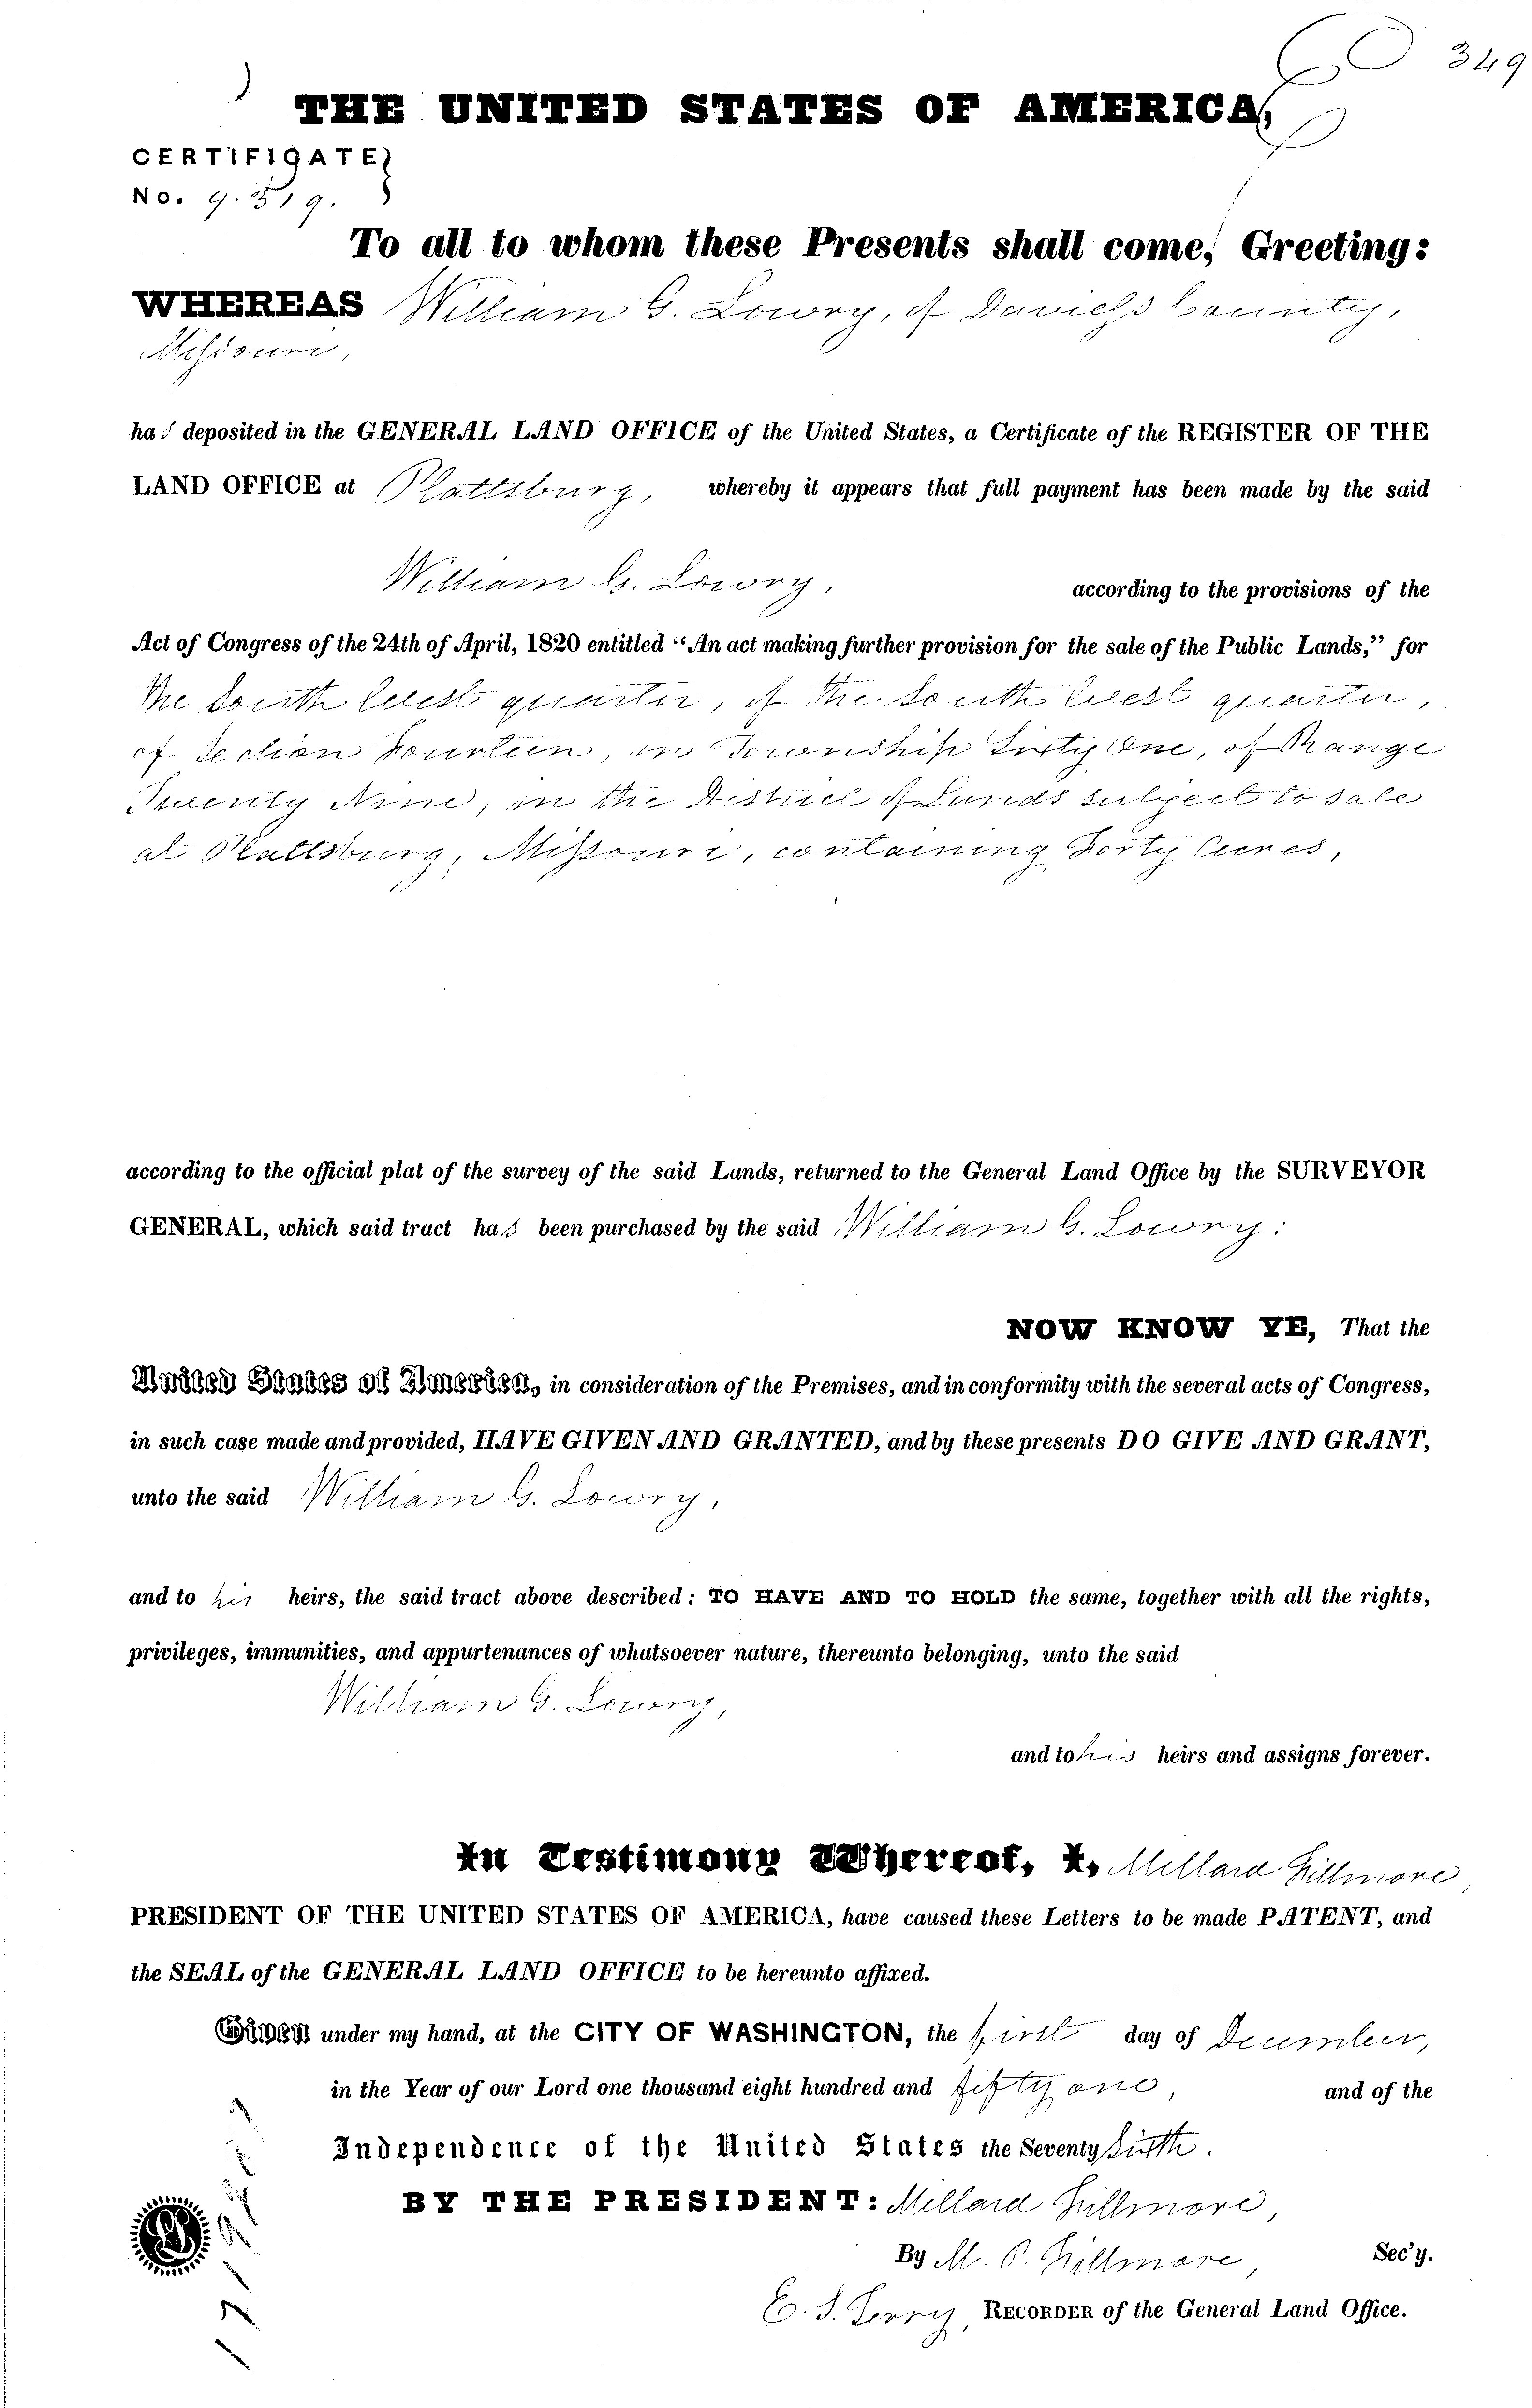 349
THE UNITED STATES OF AMERICA,
CERTIFICATE
No. 9.519.
To all to whom these Presents shall come, Greeting:
WHEREAS William G. Lowry, of Daviess County,
Missouri,
has deposited in the GENERAL LAND OFFICE of the United States, a Certificate of the REGISTER OF THE
LAND OFFICE at Plattsburg, whereby it appears that full payment has been made by the said
William G. Lowry, according to the provisions of the
Act of Congress of the 24th of April, 1820 entitled “An act making further provision for the sale of the Public Lands,” for
the South West quarter, of the South West quarter,
of Section Fourteen, in Township Sixty One, of Range
Twenty Nine, in the District of Lands subject to sale
at Plattsburg, Missouri, containing Forty Acres,
according to the official plat of the survey of the said Lands, returned to the General Land Office by the SURVEYOR
GENERAL, which said tract has been purchased by the said William G. Lowry:
NOW KNOW YE, That the
United States of America, in consideration of the Premises, and in conformity with the several acts of Congress,
in such case made and provided, HAVE GIVEN AND GRANTED, and by these presents DO GIVE AND GRANT,
unto the said William G. Lowry,
and to his heirs, the said tract above described: TO HAVE AND TO HOLD the same, together with all the rights,
privileges, immunities, and appurtenances of whatsoever nature, thereunto belonging, unto the said
William G. Lowry,
and to his heirs and assigns forever.
In Testimony Whereof, I, Millard Fillmore,
PRESIDENT OF THE UNITED STATES OF AMERICA, have caused these Letters to be made PATENT, and
the SEAL of the GENERAL LAND OFFICE to be hereunto affixed.
Given under my hand, at the CITY OF WASHINGTON, the first day of December,
in the Year of our Lord one thousand eight hundred and fifty one, and of the
Independence of the United States the Seventy sixth.
BY THE PRESIDENT: Millard Fillmore,
By M. P. Fillmore, Sec'y.
E. S. Terry, RECORDER of the General Land Office.